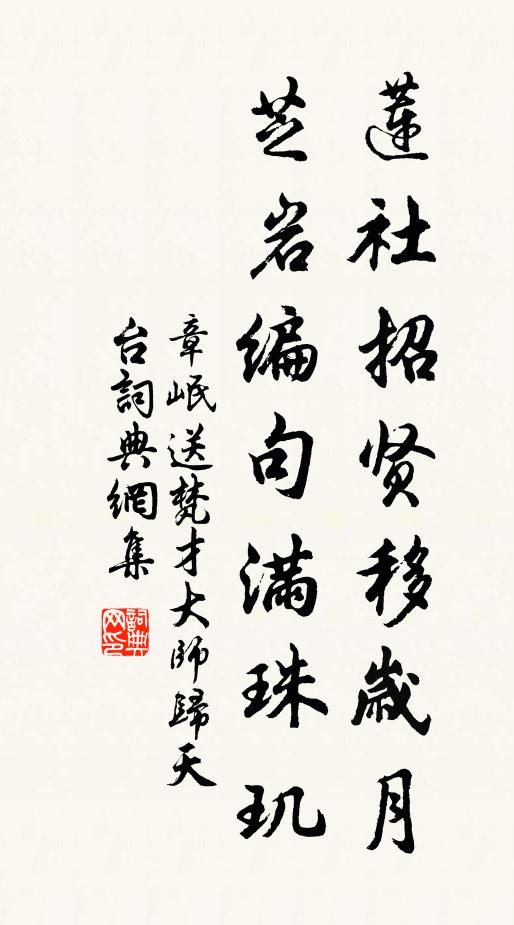 蓮社招贤移歲月
芝岩编句满珠玑
章岷送梵才大师歸天
台詞典網集
詞典
网印